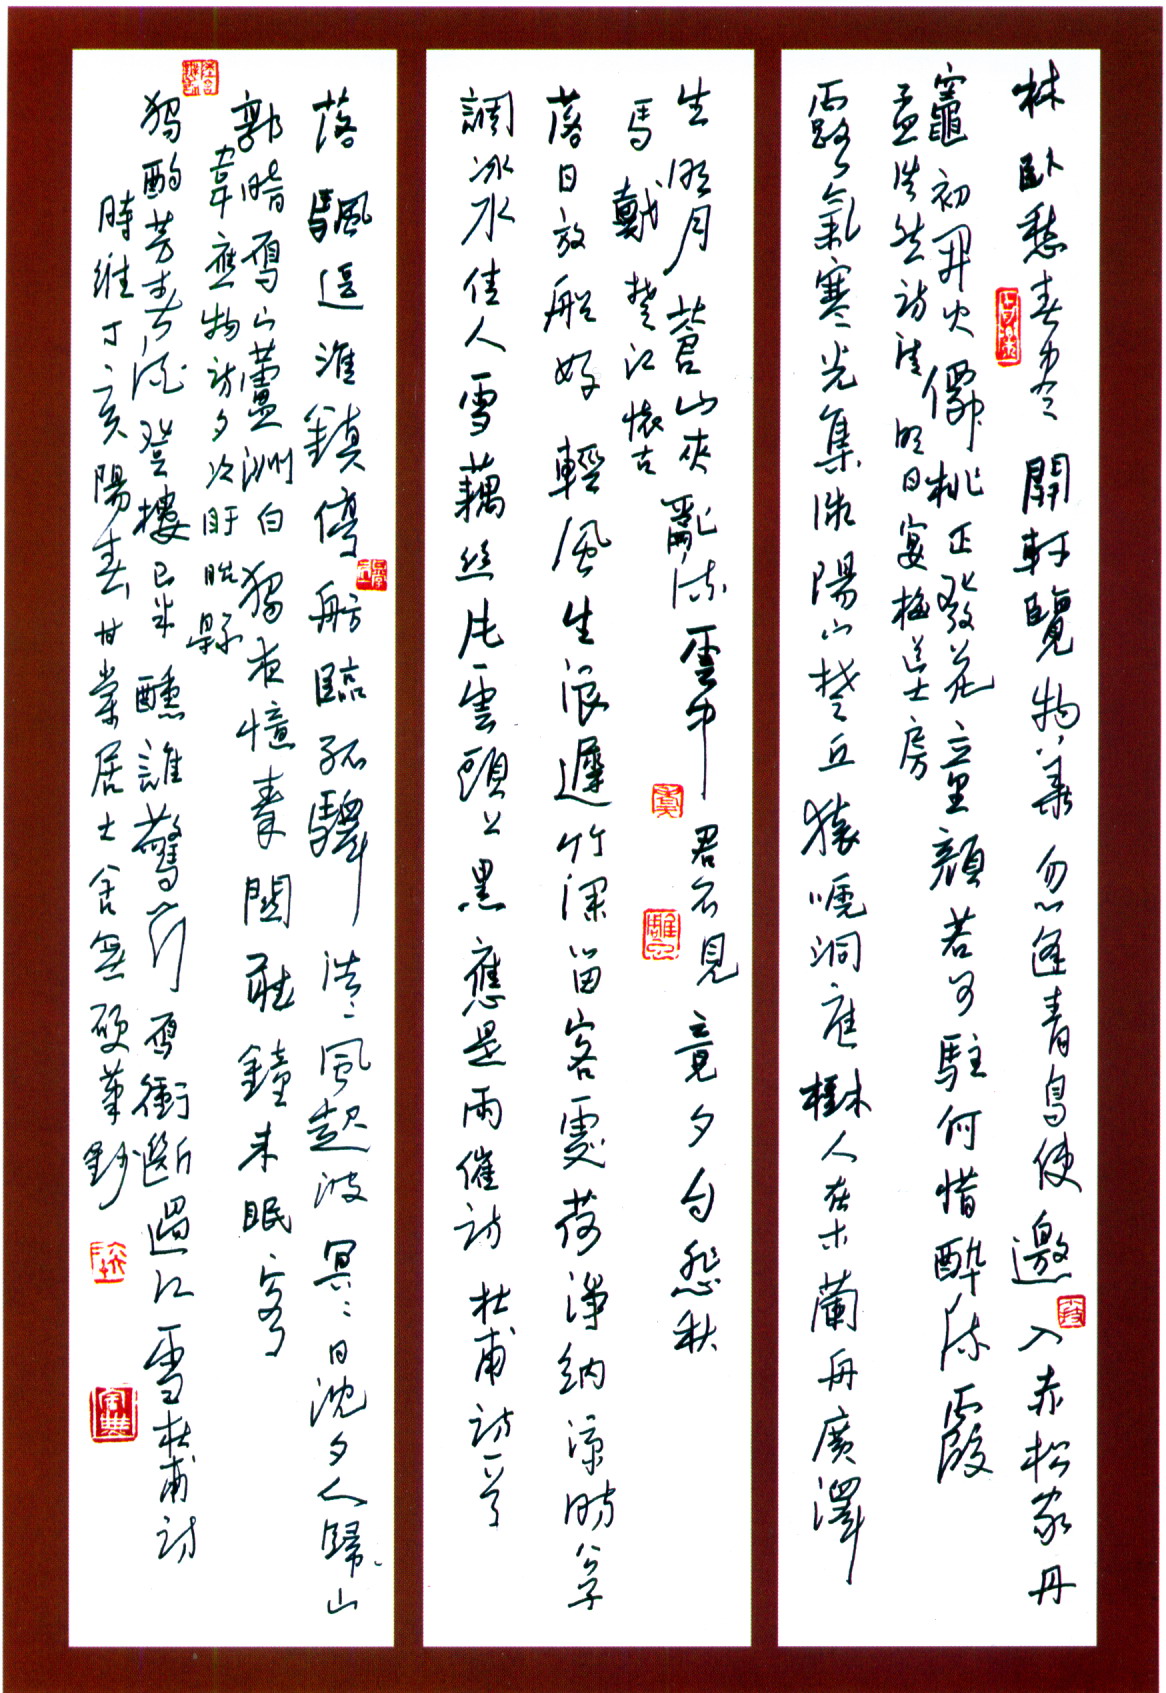 林臥愁春尽開軒覽物華忽逢青鳥使邀入赤松家丹
竈初開火僊桃正發花童顏若可駐何惜醉流霞
孟浩然詩清明日宴梅道士房
露氣寒光集微陽山楚丘猿啼洞庭樹人在木蘭舟廣澤
生明月蒼山夾亂流雲中君不見竟夕自悲秋
馬戴楚江懷古
落日放船好輕風生浪遲竹深留客處荷淨納涼時公子
調冰水佳人雪藕絲片雲頭上黑應是雨催詩杜甫詩一首
落颿逗淮鎮停舫臨孤驛浩〻風起波冥〻日沈夕人歸山
郭暗雁山蘆洲白獨夜憶秦關聽鐘未眠客
韋應物詩夕次盱眙縣
獨酌芳春酒登樓已半醺誰驚一行雁衝斷過江雲杜甫詩
時維丁亥陽春甘棠居士舍無硬筆鈔